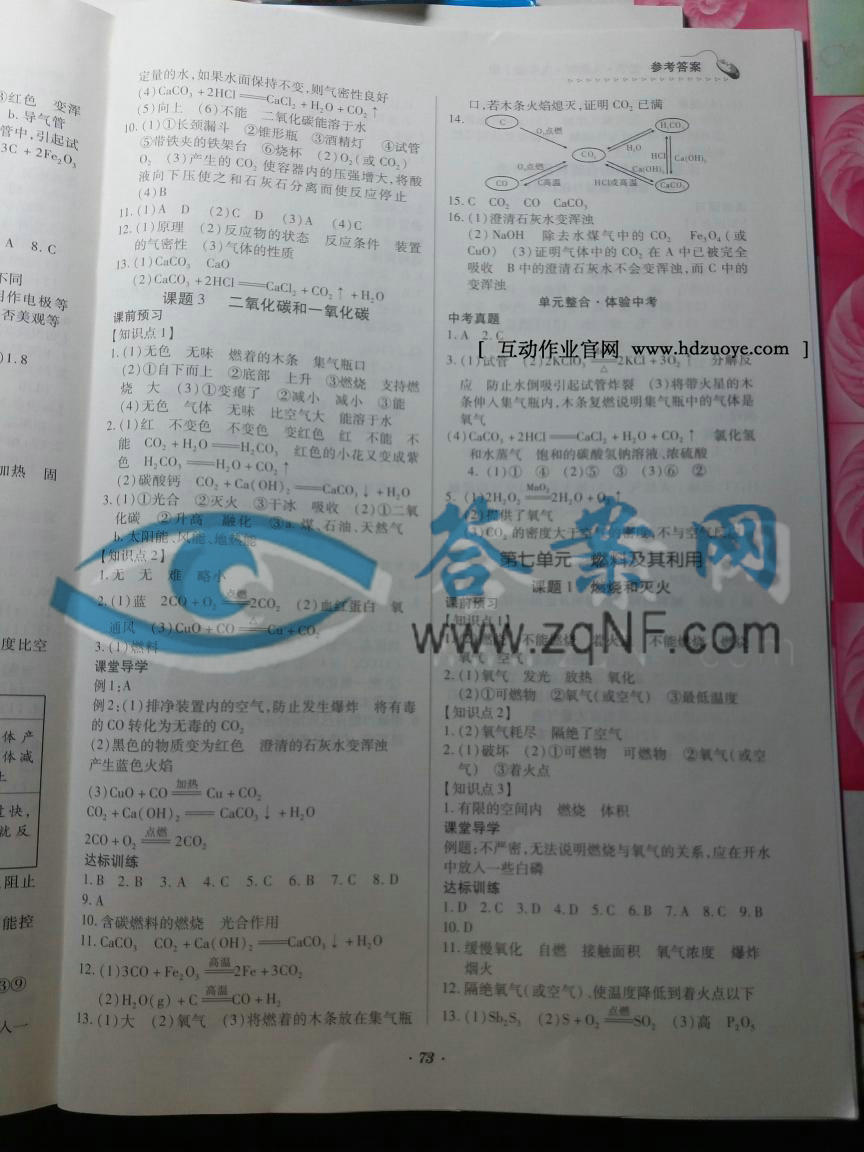 参考答案
③红色 变浑
b. 导气管
管中,引起试
3C + 2Fe₂O₃
A 8. C
不同
用作电极等
否美观等
)1.8
加热 固
度比空
体产
体减
过快,
就反
阻止
能控
③⑨
人一
定量的水,如果水面保持不变,则气密性良好
(4)CaCO₃ +2HCl══CaCl₂ + H₂O + CO₂↑
(5)向上 (6)不能 二氧化碳能溶于水
10. (1)①长颈漏斗 ②锥形瓶 ③酒精灯 ④试管
⑤带铁夹的铁架台 ⑥烧杯 (2)O₂(或 CO₂)
O₂ (3)产生的 CO₂ 使容器内的压强增大,将酸
液向下压使之和石灰石分离而使反应停止
(4)B
11. (1)A D (2)C D (3)A (4)C
12. (1)原理 (2)反应物的状态 反应条件 装置
的气密性 (3)气体的性质
13. (1)CaCO₃ CaO
(2)CaCO₃ +2HCl══CaCl₂ + CO₂↑ + H₂O
课题 3 二氧化碳和一氧化碳
课前预习
【知识点 1】
1. (1)无色 无味 燃着的木条 集气瓶口
(2)①自下而上 ②底部 上升 ③燃烧 支持燃
烧 大 (3)①变瘪了 ②减小 减小 ③能
(4)无色 气体 无味 比空气大 能溶于水
2. (1)红 不变色 不变色 变红色 红 不能 不
能 CO₂ + H₂O══H₂CO₃ 红色的小花又变成紫
色 H₂CO₃══H₂O + CO₂↑
(2)碳酸钙 CO₂ + Ca(OH)₂══CaCO₃↓ + H₂O
3. (1)①光合 ②灭火 ③干冰 吸收 (2)①二氧
化碳 ②升高 融化 ③a. 煤、石油、天然气
b. 太阳能、风能、地热能
【知识点 2】
1. 无 无 难 略小
2. (1)蓝 2CO + O₂ 点燃══2CO₂ (2)血红蛋白 氧
通风 (3)CuO + CO △══Cu + CO₂
3. (1)燃料
课堂导学
例 1:A
例 2:(1)排净装置内的空气,防止发生爆炸 将有毒
的 CO 转化为无毒的 CO₂
(2)黑色的物质变为红色 澄清的石灰水变浑浊
产生蓝色火焰
(3)CuO + CO 加热══ Cu + CO₂
CO₂ + Ca(OH)₂ ══ CaCO₃↓ + H₂O
2CO + O₂ 点燃══ 2CO₂
达标训练
1. B 2. B 3. A 4. C 5. C 6. B 7. C 8. D
9. A
10. 含碳燃料的燃烧 光合作用
11. CaCO₃ CO₂ + Ca(OH)₂══CaCO₃↓ + H₂O
12. (1)3CO + Fe₂O₃ 高温══2Fe + 3CO₂
(2)H₂O(g) + C 高温══CO + H₂
13. (1)大 (2)氧气 (3)将燃着的木条放在集气瓶
口,若木条火焰熄灭,证明 CO₂ 已满
14.
C
O₂点燃
H₂CO₃
H₂O
CO₂
HCl
Ca(OH)₂
Ca(OH)₂
O₂点燃
CO
C高温
HCl或高温
CaCO₃
15. C CO₂ CO CaCO₃
16. (1)澄清石灰水变浑浊
(2)NaOH 除去水煤气中的 CO₂ Fe₃O₄(或
CuO) (3)证明气体中的 CO₂ 在 A 中已被完全
吸收 B 中的澄清石灰水不会变浑浊,而 C 中的
变浑浊
单元整合·体验中考
中考真题
1. A 2. C
[ 互动作业官网 www.hdzuoye.com ]
3. (1)试管 (2)2KClO₃ △══2KCl + 3O₂↑ 分解反
应 防止水倒吸引起试管炸裂 (3)将带火星的木
条伸入集气瓶内,木条复燃说明集气瓶中的气体是
氧气
(4)CaCO₃ +2HCl══CaCl₂ + H₂O + CO₂↑ 氯化氢
和水蒸气 饱和的碳酸氢钠溶液、浓硫酸
4. (1)① ④ (2)⑤ ③ (3)⑥ ②
5. (1)2H₂O₂ MnO₂══2H₂O + O₂↑
(2)提供了氧气
(3)CO₂ 的密度大于空气的密度,不与空气反应
答案网
www.zqNF.com
第七单元 燃料及其利用
课题 1 燃烧和灭火
课前预习
【知识点 1】
不能燃烧 不能燃烧
氧气 空气
2. (1)氧气 发光 放热 氧化
(2)①可燃物 ②氧气(或空气) ③最低温度
【知识点 2】
1. (2)氧气耗尽 隔绝了空气
2. (1)破坏 (2)①可燃物 可燃物 ②氧气(或空
气) ③着火点
【知识点 3】
1. 有限的空间内 燃烧 体积
课堂导学
例题:不严密,无法说明燃烧与氧气的关系,应在开水
中放入一些白磷
达标训练
1. D 2. C 3. D 4. D 5. C 6. B 7. A 8. C 9. B
10. D
11. 缓慢氧化 自燃 接触面积 氧气浓度 爆炸
烟火
12. 隔绝氧气(或空气)、使温度降低到着火点以下
13. (1)Sb₂S₃ (2)S + O₂ 点燃══SO₂ (3)高 P₂O₅
· 73 ·